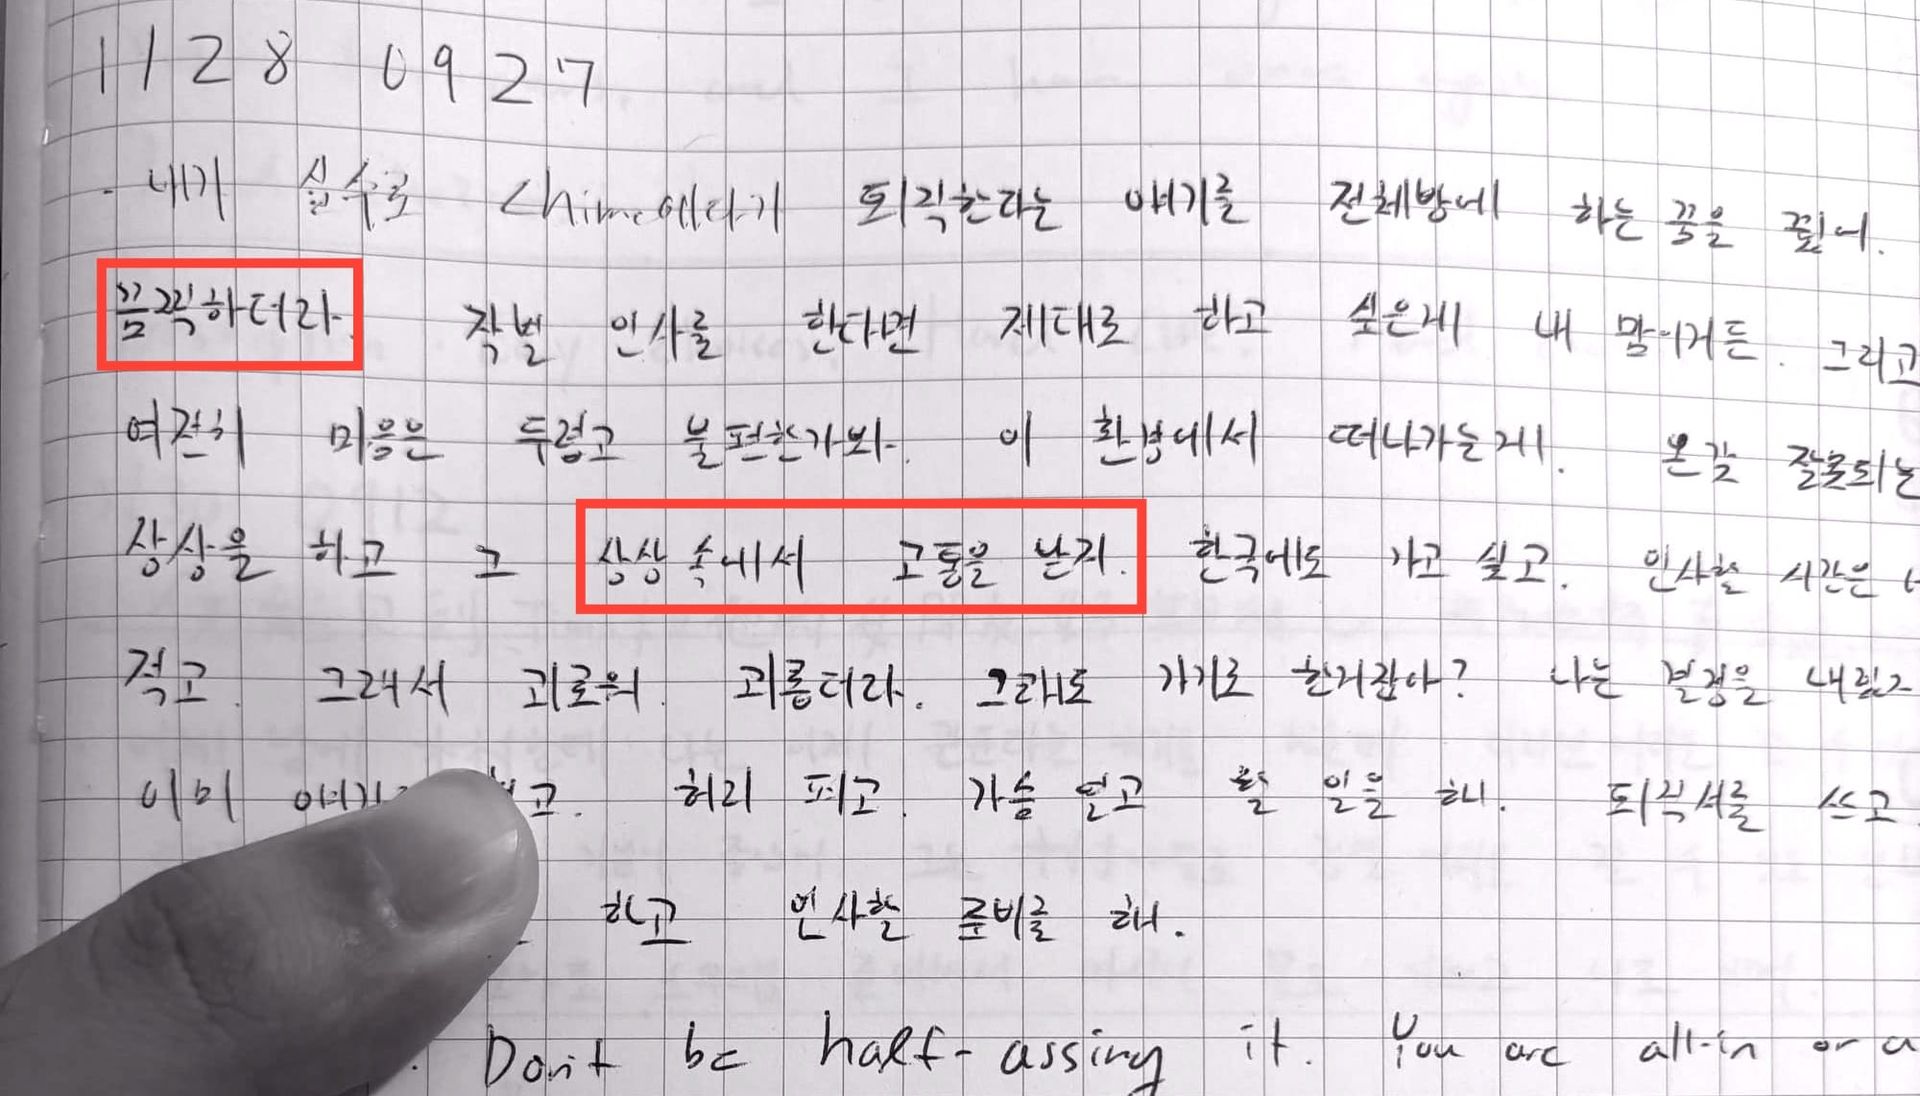 1128 0927
· 내가 실수로 Chime에다가 퇴직한다는 얘기를 전체방에 하는 꿈을 꿨어.
끔찍하더라. 작별 인사를 한다면 제대로 하고 싶은게 내 맘이거든. 그리고
여전히 마음은 두렵고 불편한가봐. 이 환경에서 떠나가는게. 온갖 잘못되는
상상을 하고 그 상상 속에서 고통을 받지. 한국에도 가고 싶고. 인사할 시간은
적고. 그래서 괴로워. 괴롭더라. 그래도 가기로 한거잖아? 나는 결정을
이미 했고. 허리 펴고. 가슴 펴고 할 일을 해. 퇴직서를 쓰고.
하고 인사할 준비를 해.
. Don't be half-assing it. You are all-in or